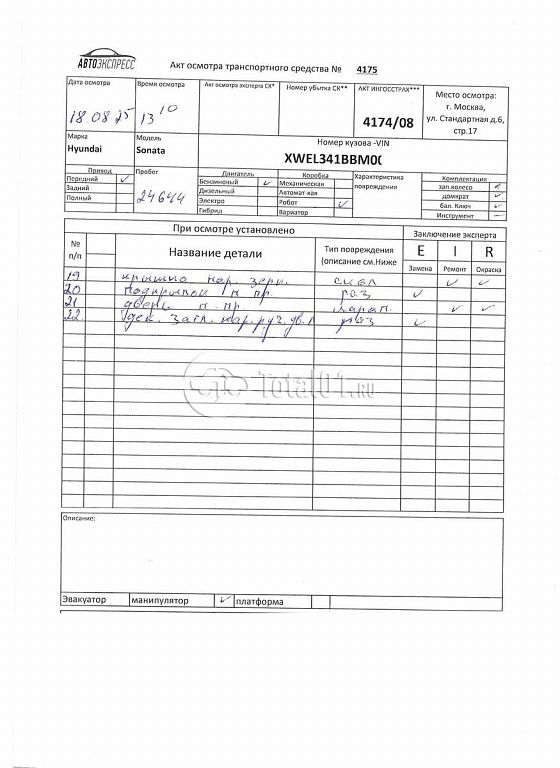 АВТОЭКСПРЕСС
Акт осмотра транспортного средства № 4175
Дата осмотра
18.08.25
Время осмотра
13 10
Акт осмотра эксперта СК*
Номер убытка СК**
АКТ ИНГОССТРАХ***
4174/08
Место осмотра:
г. Москва,
ул. Стандартная д.6,
стр.17
Марка
Hyundai
Модель
Sonata
Номер кузова -VIN
XWEL341BBM0
Привод
Передний
Задний
Полный
Пробег
24644
Двигатель
Бензиновый
Дизельный
Электро
Гибрид
Коробка
Механическая
Автомат-кая
Робот
Вариатор
Характеристика
повреждения
Комплектация
зап.колесо
домкрат
бал. Ключ
Инструмент
При осмотре установлено
Заключение эксперта
№
п/п
Название детали
Тип повреждения
(описание см.Ниже
E I R
Замена Ремонт Окраска
19 крышка нар. зерк. скол
20 подкрылок п пр. раз
21 дверь п.пр царап.
22 загл. нар. руч. дв. раз
Total01.RU
Описание:
Эвакуатор манипулятор платформа